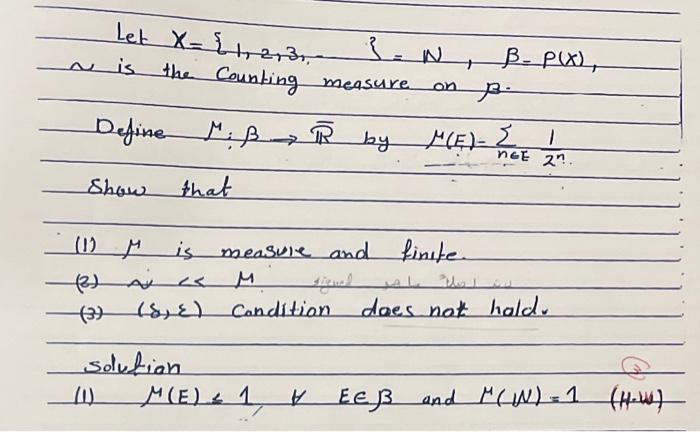 Let X = {1, 2, 3, - } = ℕ, β = P(X),
ν is the Counting measure on β.
Define μ: β → ℝ̅ by μ(E) = ∑_{n∈E} 1/2ⁿ.
Show that
(1) μ is measure and finite.
(2) ν << μ
(3) (δ, ε) Condition does not hold.
solution
(1) μ(E) ≤ 1, ∀ E∈β and μ(ℕ) = 1 (H.W)